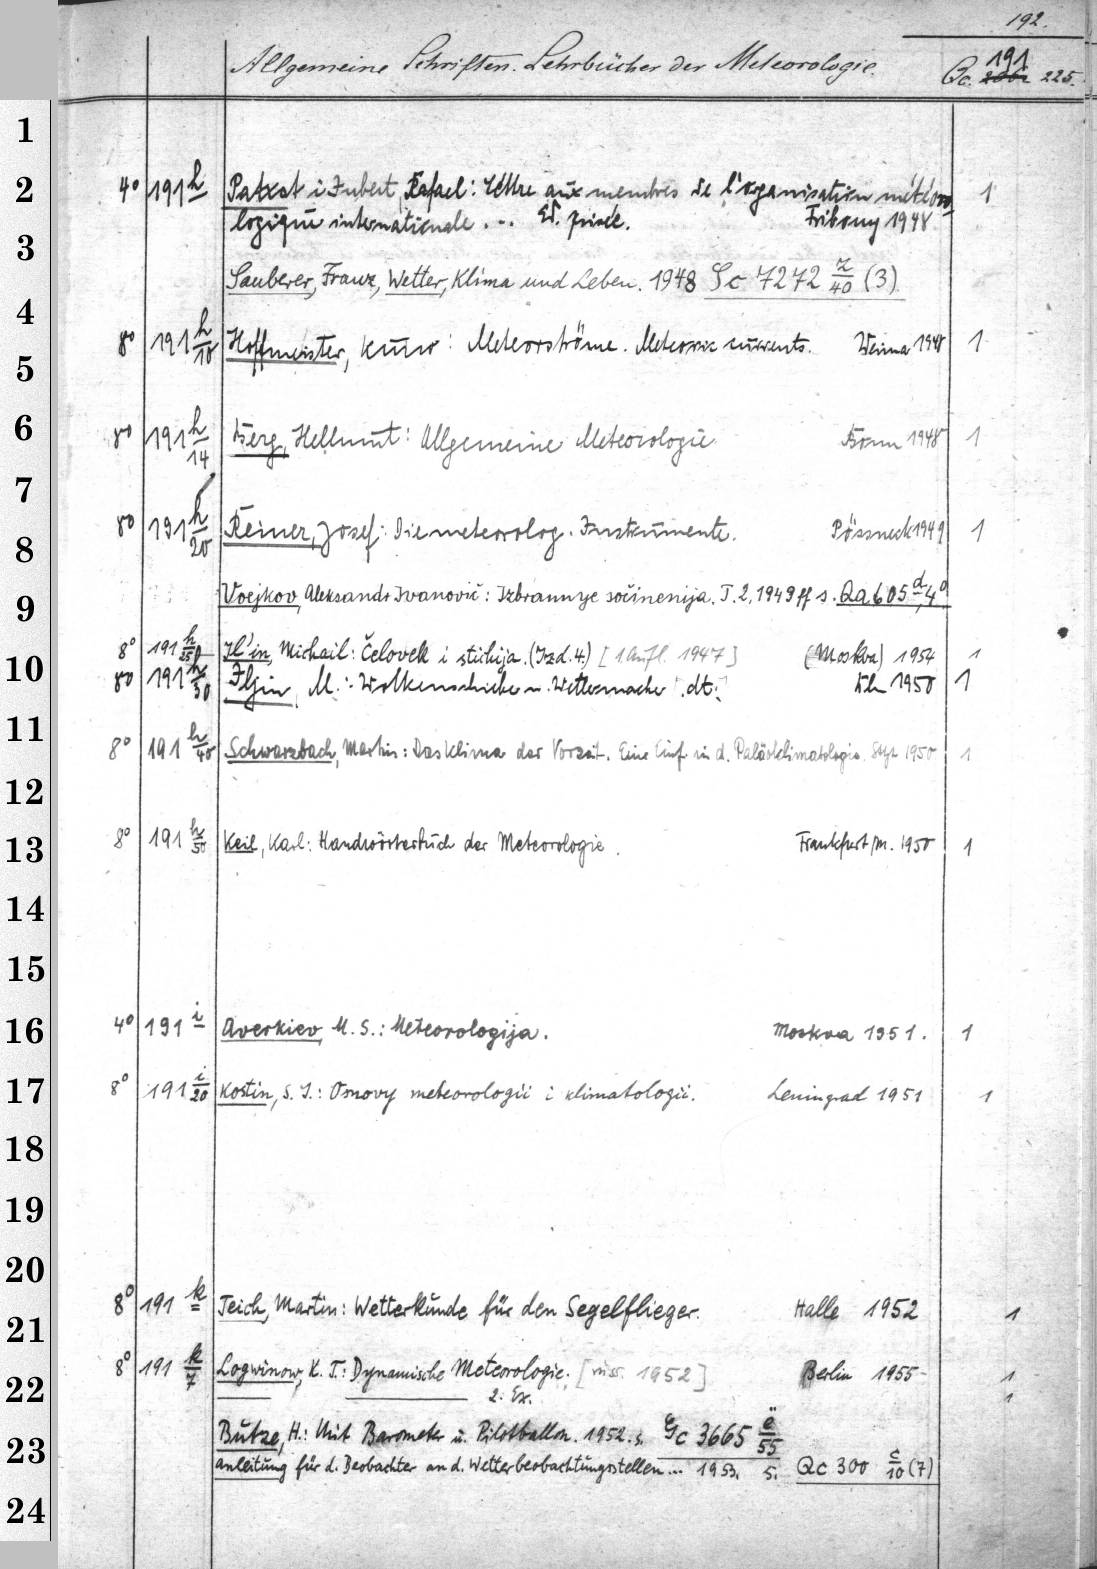 192.
Allgemeine Schriften. Lehrbücher der Meteorologie. Qc. 191 225.
1
2
3
4
5
6
7
8
9
10
11
12
13
14
15
16
17
18
19
20
21
22
23
24
4° 191 h Patxot i Jubert, Rafael: Lettre aux membres de l'organisation météoro 1
logique internationale ... Ed. privée. Fribourg 1948
Sauberer, Franz, Wetter, Klima und Leben. 1948 Sc 7272 r/40 (3)
8° 191 h/10 Hoffmeister, Cuno: Meteorströme. Meteoric currents. Weimar 1948 1
8° 191 h/14 Berg, Hellmut: Allgemeine Meteorologie Bonn 1948 1
8° 191 h/20 Reiner, Josef: Die meteorolog. Instrumente. Pössneck 1949 1
Voejkov, Aleksandr Ivanovič: Izbrannye sočinenija. T. 2, 1949 ff s. Qa 605 d, 4°
8° 191 h/25 Il'in, Michail: Čelovek i stichija. (Izd. 4.) [1 Aufl. 1947] (Moskva) 1954 1
8° 191 h/30 Iljin, M.: Wolkenschieber u. Wettermacher dt. Bln 1950 1
8° 191 h/40 Schwarzbach, Martin: Das Klima der Vorzeit. Eine Einf. in d. Paläoklimatologie. Stgt 1950 1
8° 191 h/50 Keil, Karl: Handwörterbuch der Meteorologie. Frankfurt/M. 1950 1
4° 191 i Averkiev, M. S.: Meteorologija. Moskva 1951. 1
8° 191 i/20 Kostin, S. I.: Osnovy meteorologii i klimatologii. Leningrad 1951 1
8° 191 k Teich, Martin: Wetterkunde für den Segelflieger. Halle 1952 1
8° 191 k/7 Logwinow, K. T.: Dynamische Meteorologie. [russ. 1952] Berlin 1955 1
2. Ex. 1
Butze, H.: Mit Barometer u. Pilotballon. 1952. s. Gc 3665 ë/55
Anleitung für d. Beobachter an d. Wetterbeobachtungsstellen... 1953. s. Qc 300 c/10 (7)